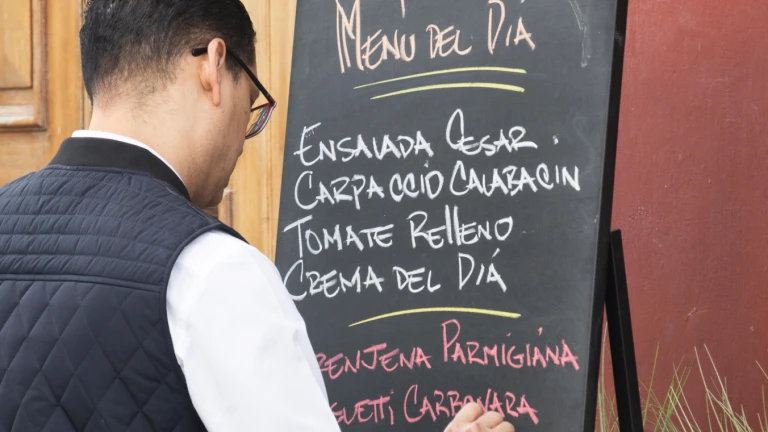 Menú del Día
Ensalada Cesar
Carpaccio Calabacin
Tomate Relleno
Crema del Diá
Parmigiána
Carbonara